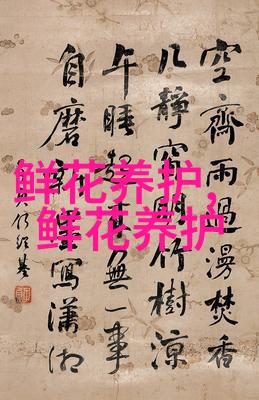 空齋雨過漫焚香
几靜窗明竹樹涼
午睡起無一事
自磨寫瀟湘
鲜花养护,
鲜花养护